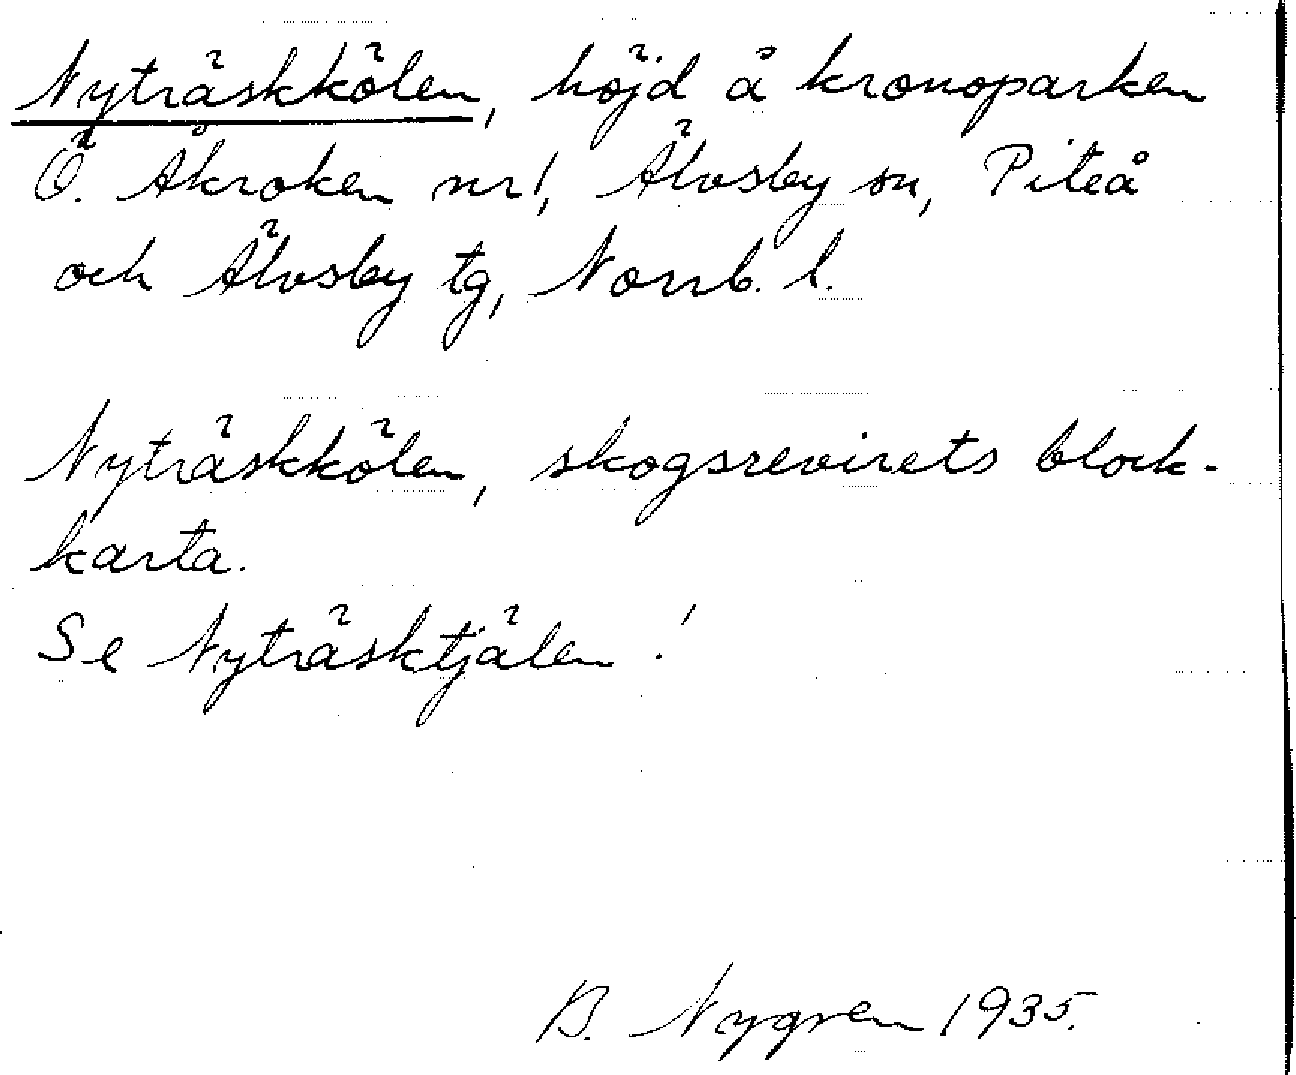 Nyträskkölen, höjd å kronoparken
Ö. Åkroken nr 1, Älvsby sn, Piteå
och Älvsby tg, Norrb. l.
Nyträskkölen, skogsrevirets block-
karta.
Se Nyträsktjälen!
B. Nygren 1935.